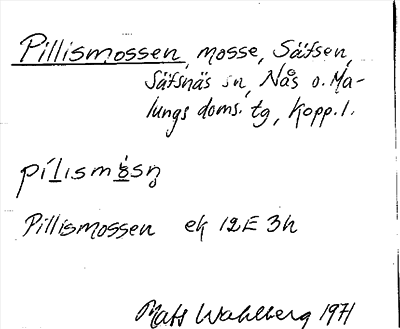 Pillismossen, mosse, Säfsen,
Säfsnäs sn, Nås o. Ma-
lungs doms. tg, Kopp. l.
pílismòsn̥
Pillismossen ek 12E 3h
Mats Wahlberg 1971